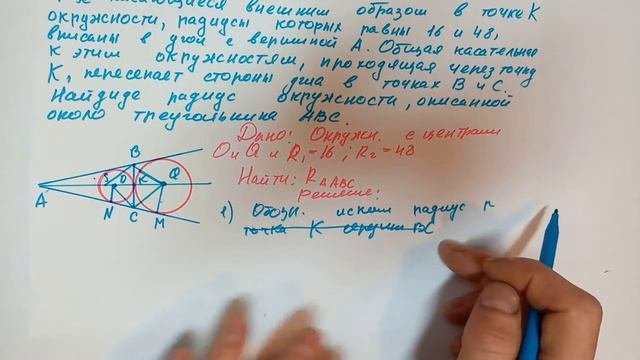 касающиеся внешним образом в точке K
окружности, радиусы которых равны 16 и 48,
вписаны в угол с вершиной A. Общая касательная
к этим окружностям, проходящая через точку
K, пересекает стороны угла в точках B и C.
Найдиде радиус окружности, описанной
около треугольника ABC.
Дано: Окружн. с центрами
O и Q и R₁=16; R₂=48
Найти: R△ABC
Решение:
1) Обозн. иском радиус r
точка K середина BC
B
O K Q
A
N C M